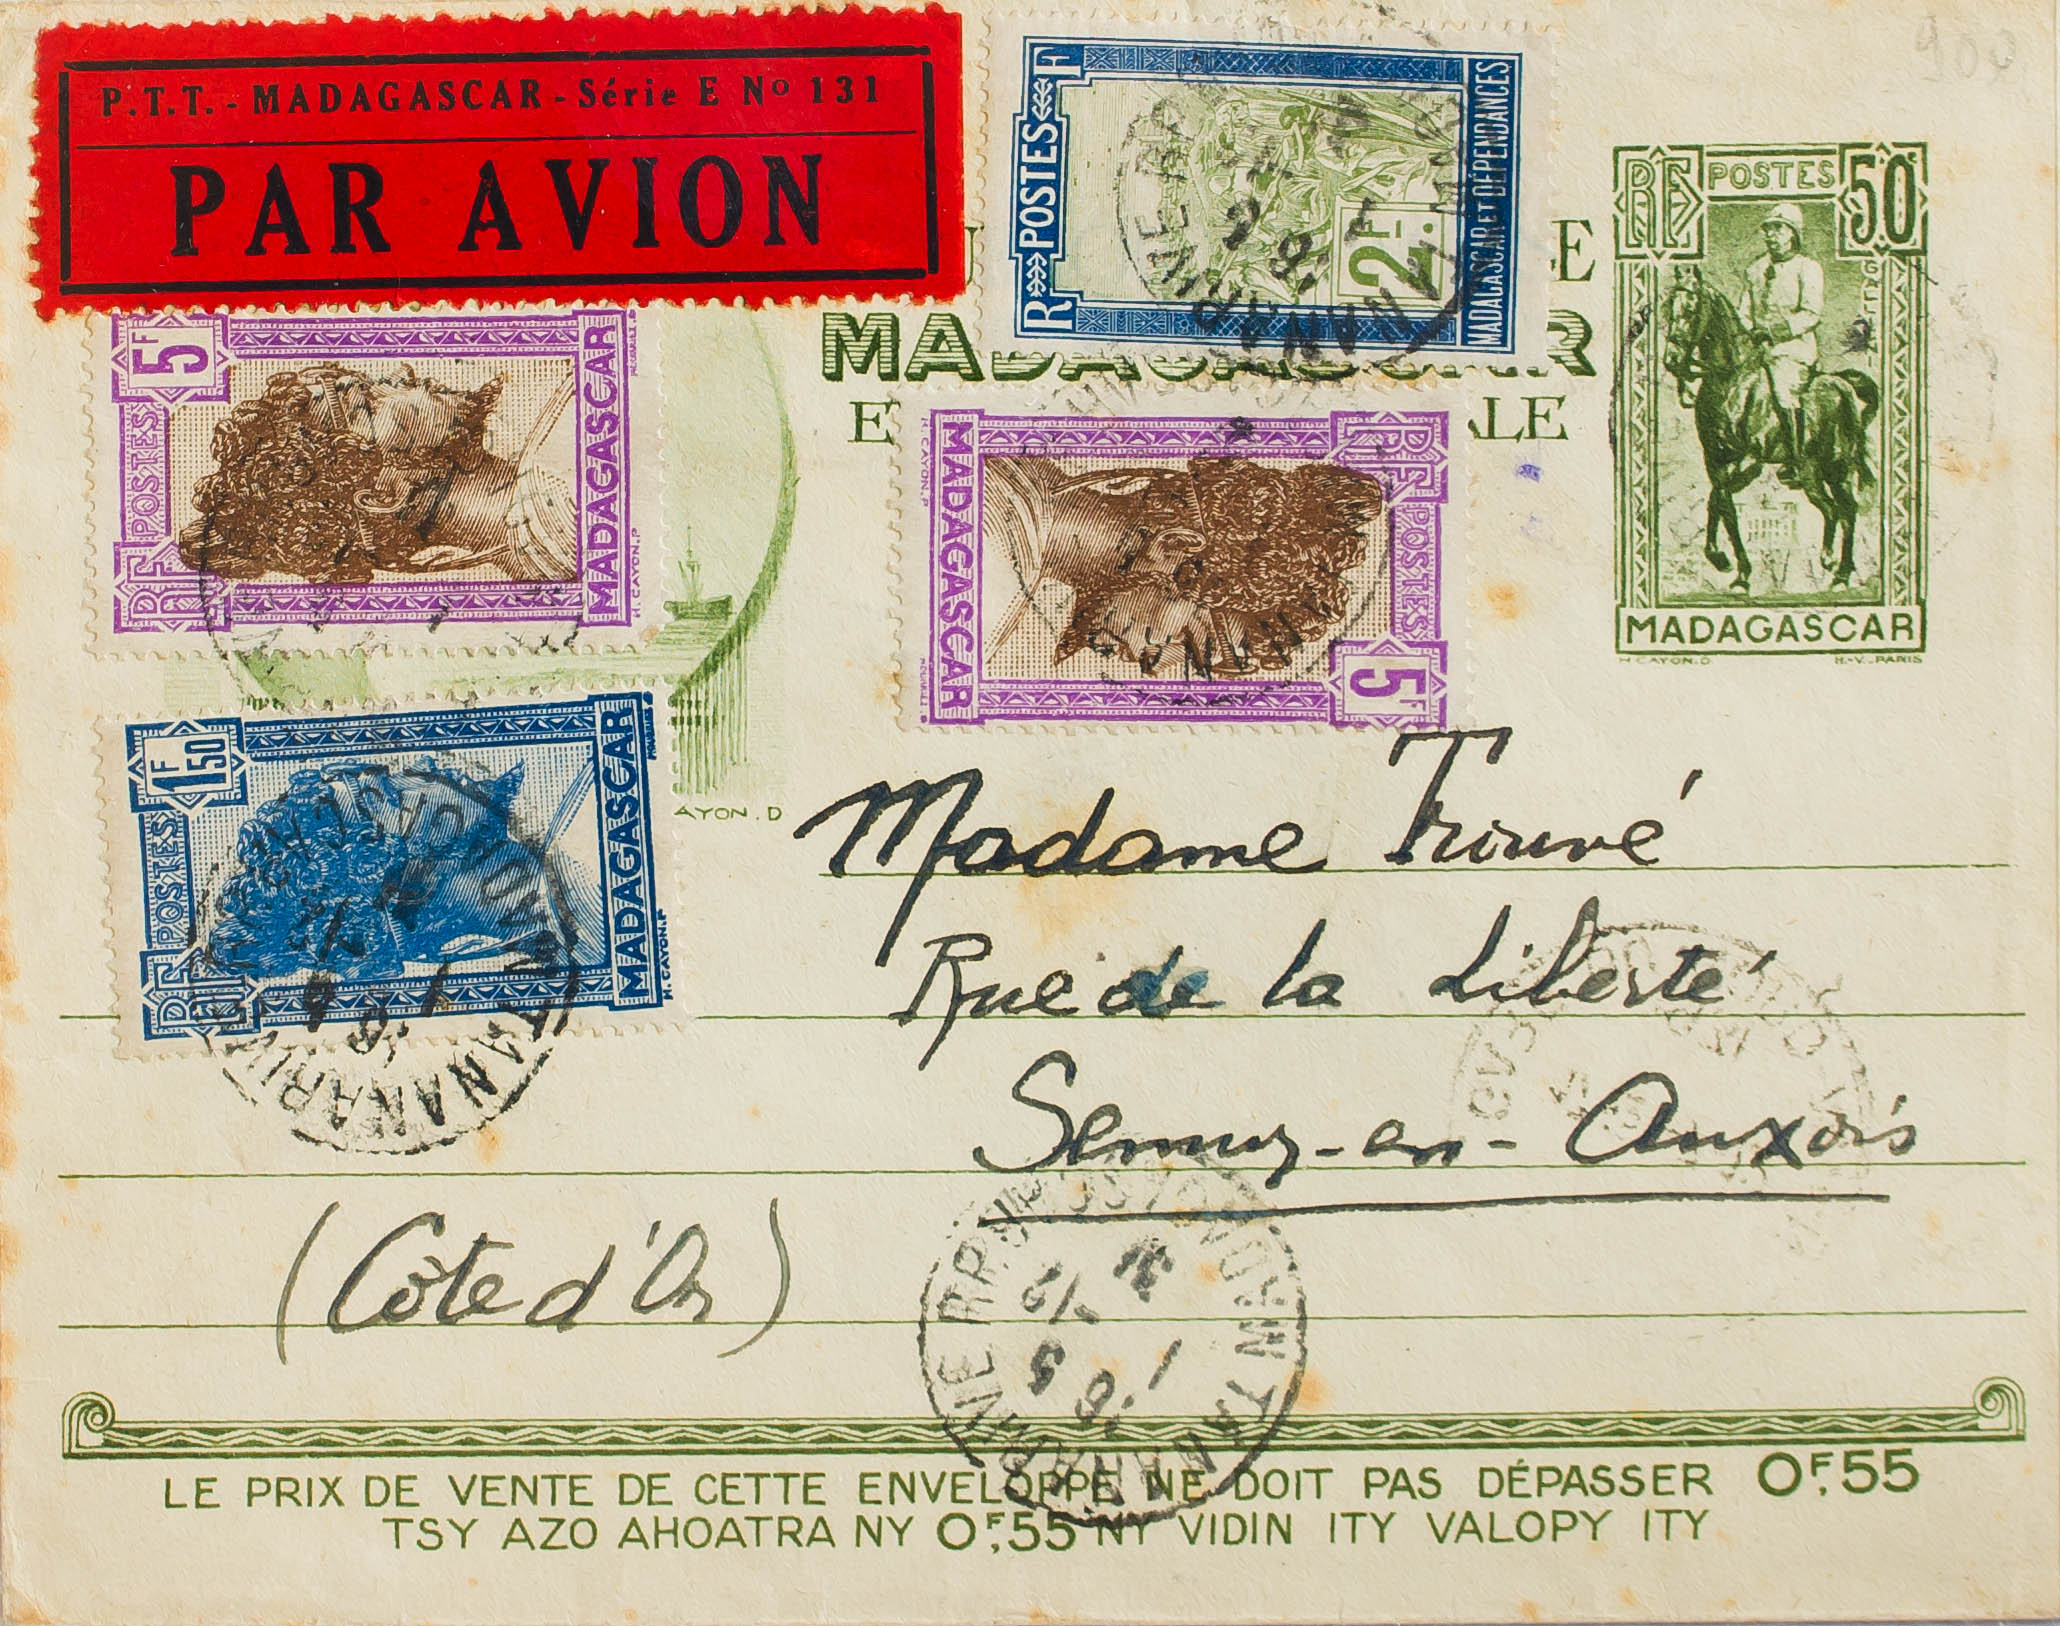 P.T.T. - MADAGASCAR - Série E Nº 131
PAR AVION
RF POSTES
2F.
MADAGASCAR ET DÉPENDANCES
RF POSTES 50c
GALLIENI
MADAGASCAR
H. CAYON. D. H.-V._PARIS
5F POSTES RF
MADAGASCAR
H. CAYON. P
RF POSTES 5F
MADAGASCAR
H. CAYON. P
1F50 POSTES RF
MADAGASCAR
H. CAYON. P
AYON. D
TANANARIVE
MADAGASCAR
Madame Trouvé
Rue de la Liberté
Semur-en-Auxois
(Côte d'Or)
LE PRIX DE VENTE DE CETTE ENVELOPPE NE DOIT PAS DÉPASSER 0F,55
TSY AZO AHOATRA NY 0F,55 NY VIDIN ITY VALOPY ITY